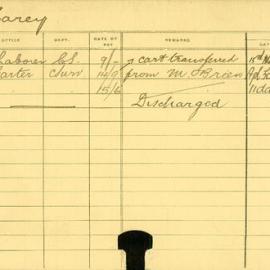 Carey
OFFICE DEPT. DATE OF REMARKS DATE
Laborer C.S. 9/- & cart transferred
Carter 14/9 from M. O'Brien
15/6
Discharged